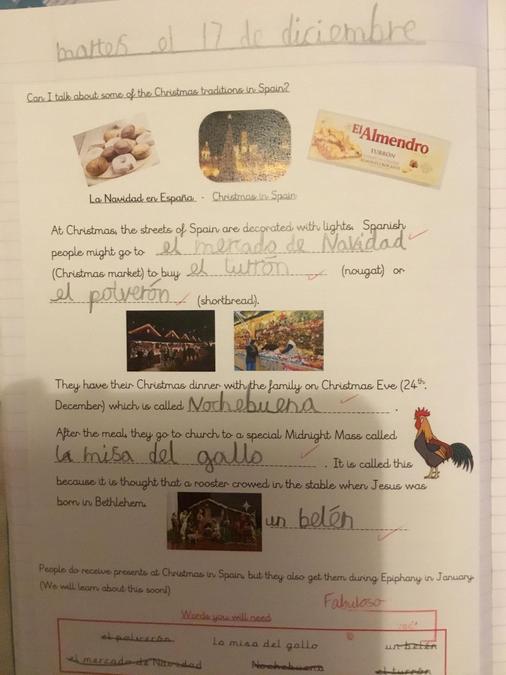 martes el 17 de diciembre
Can I talk about some of the Christmas traditions in Spain?
El Almendro
TURRÓN
La Navidad en España - Christmas in Spain
At Christmas, the streets of Spain are decorated with lights. Spanish
people might go to el mercado de Navidad
(Christmas market) to buy el turrón (nougat) or
el polverón (shortbread).
They have their Christmas dinner with the family on Christmas Eve (24th
December) which is called Nochebuena .
After the meal, they go to church to a special Midnight Mass called
la misa del gallo . It is called this
because it is thought that a rooster crowed in the stable when Jesus was
born in Bethlehem.
un belén
People do receive presents at Christmas in Spain, but they also get them during Epiphany in January
(We will learn about this soon!)
Fabuloso
Words you will need
el polverón La misa del gallo un belén
el mercado de Navidad Nochebuena el turrón